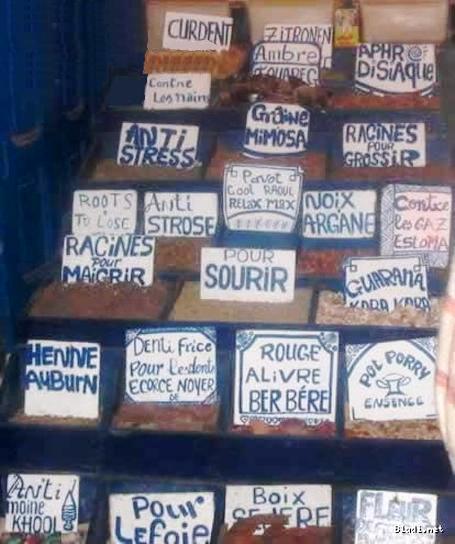 CURDENT
ZITRONEN
Ambre
TOUAREG
APHRO
DiSiAQUE
Contre
Les
ANTI
STRESS
Graine
MiMOSA
RACiNES
POUR
GROSSiR
ROOTS
To LOSE
Anti
STROSE
Pavot
Cool RAOUL
RELAX MAX
NOiX
ARGANE
Contre
les GAZ
ESTOMA
RACiNES
pour
MAiGRiR
POUR
SOURIR
GUARANA
KARA KARA
HENNE
AUBURN
DENTi FRiCE
Pour Les dents
ECORCE NOYER
DE
ROUGE
ALIVRE
BERBÉRE
POT PORRY
ENSENCE
Anti
moine
KHOOL
POUR
LEFOiE
Boix
FLEUR
Bladi.net